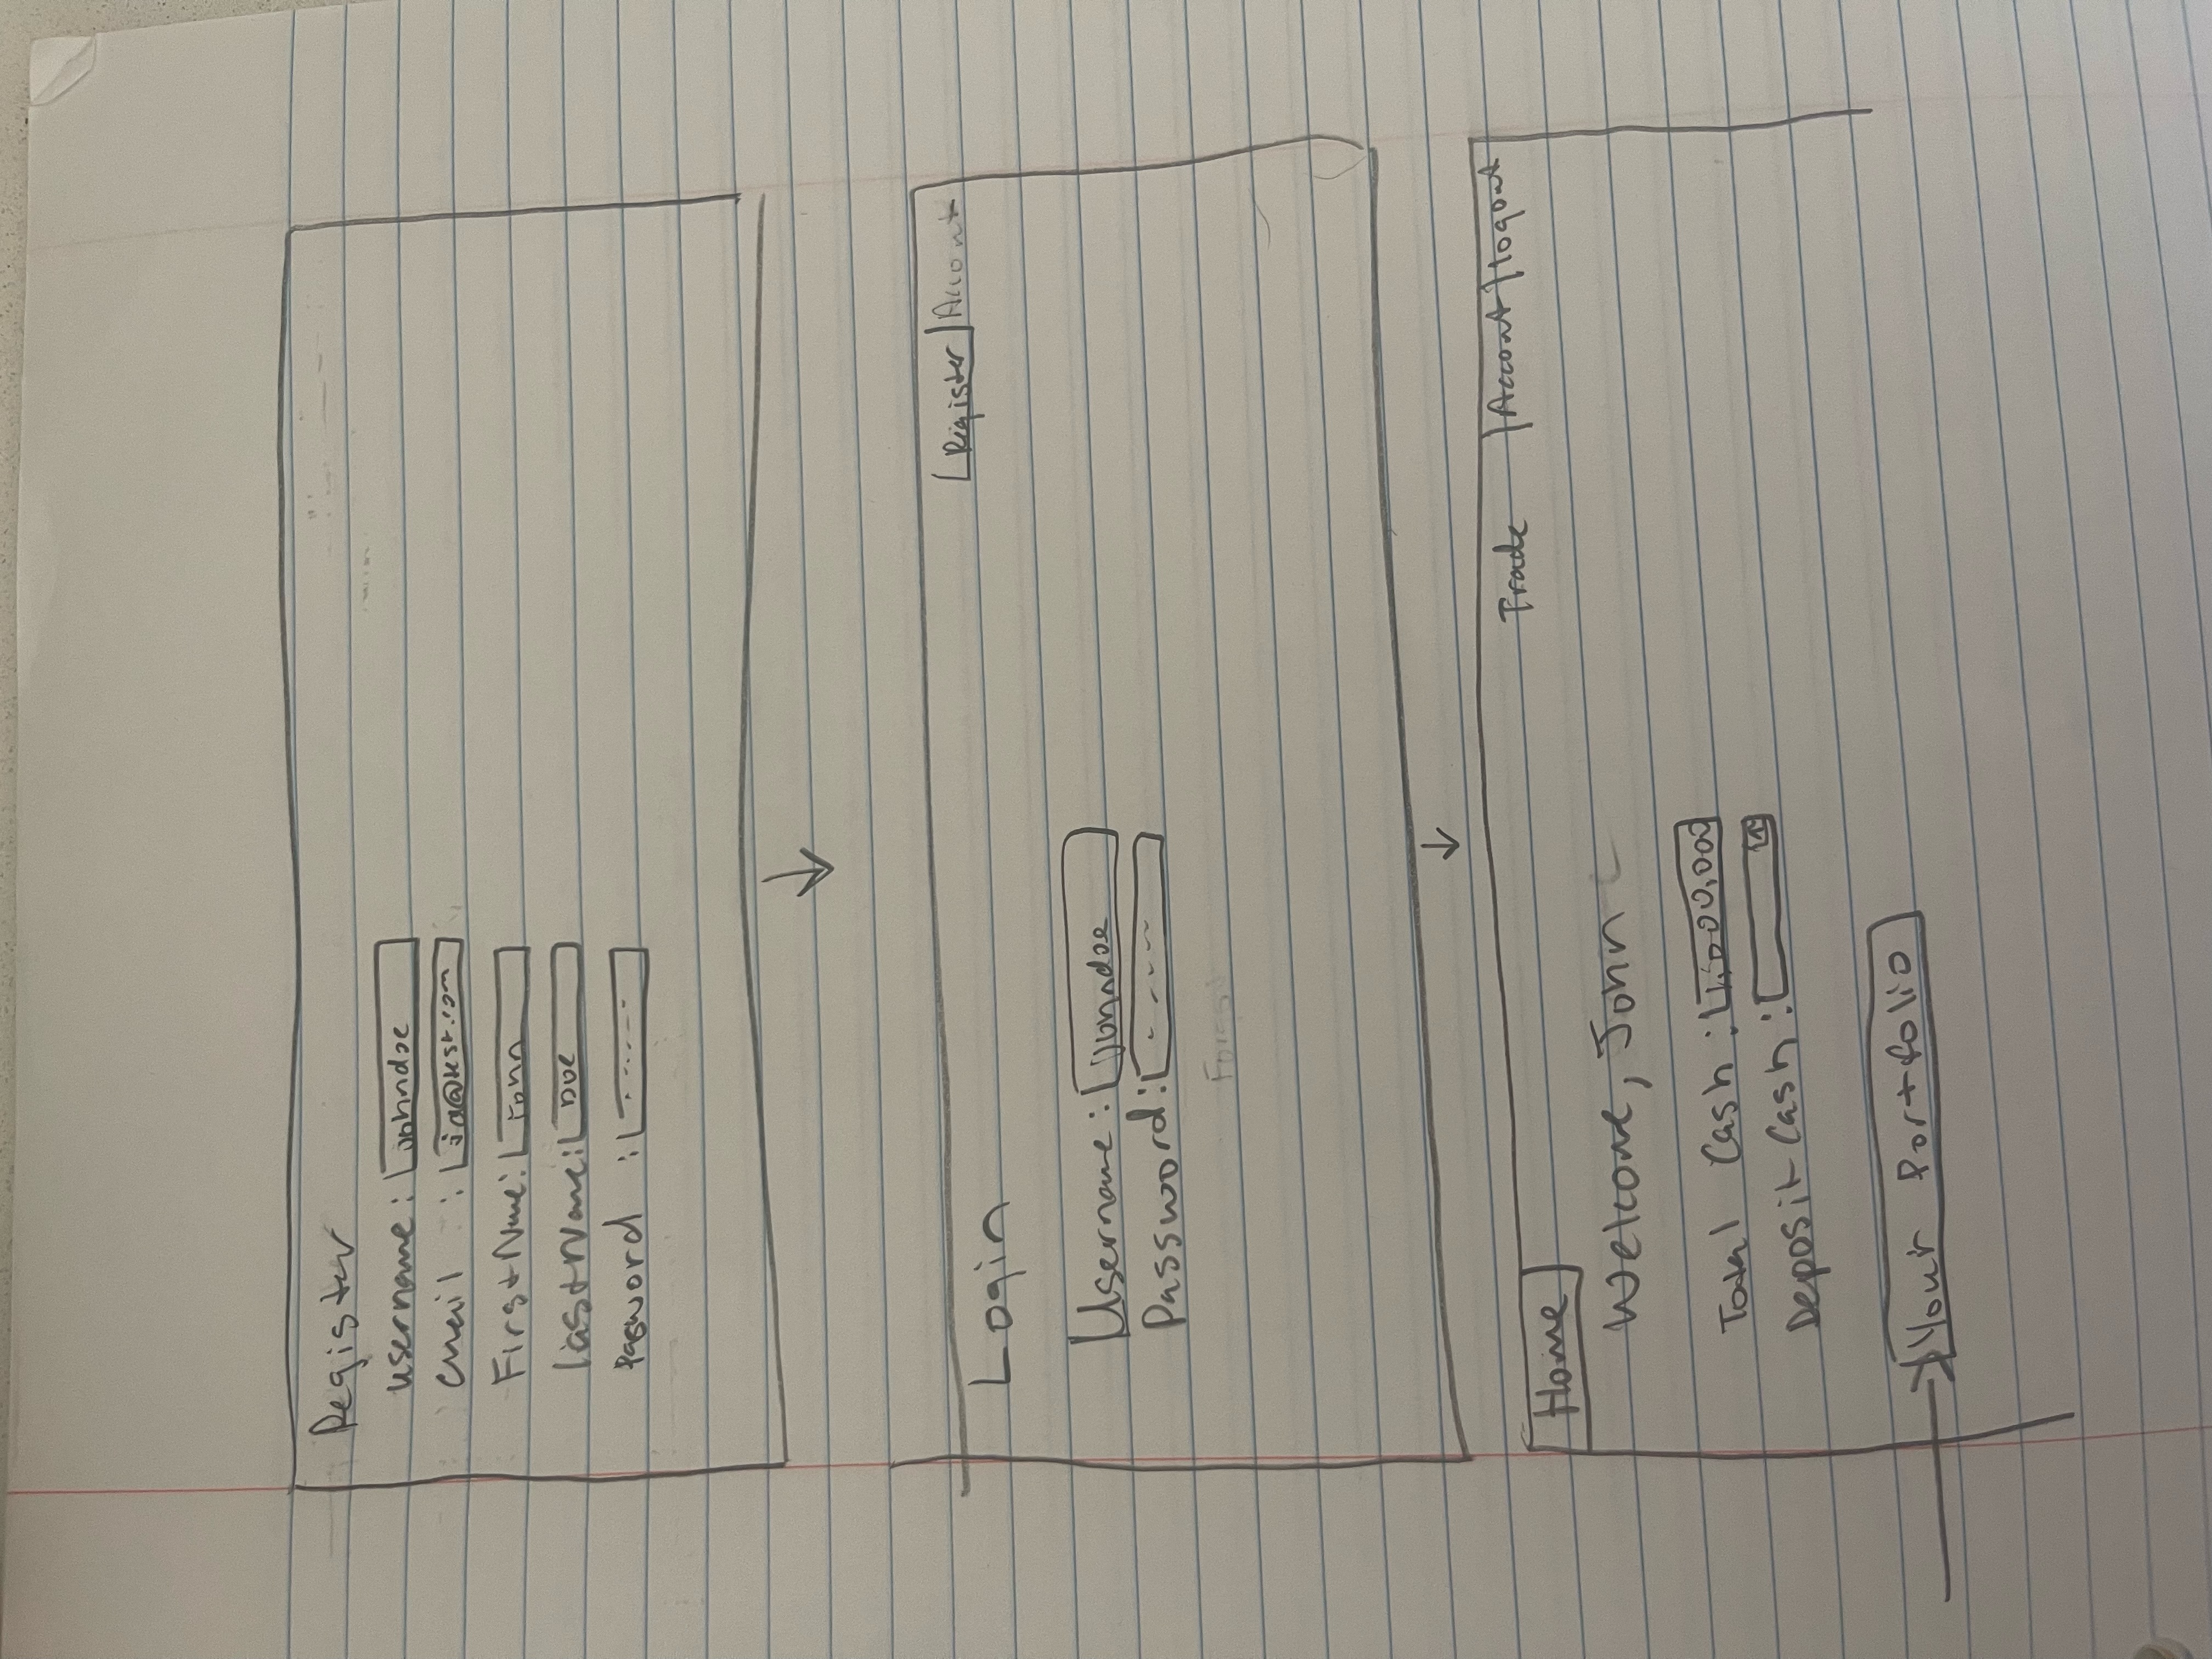 Register
username: johndoe
email : jd@test.com
First Name: john
last Name: Doe
password : ......
Register Account
Login
Username: johndoe
Password: ......
Home Trade Account logout
Welcome, John
Total Cash:
Deposit Cash:
Your Portfolio